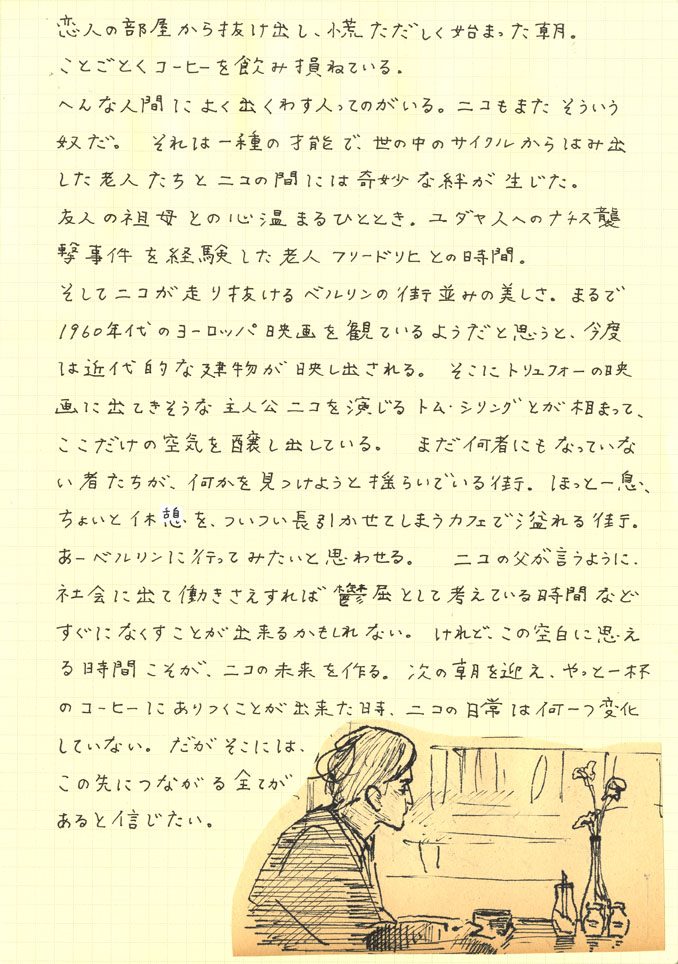 恋人の部屋から抜け出し、慌ただしく始まった朝。
ことごとくコーヒーを飲み損ねている。
へんな人間によく出くわす人ってのがいる。ニコもまたそういう
奴だ。 それは一種の才能で、世の中のサイクルからはみ出
した老人たちとニコの間には奇妙な絆が生じた。
友人の祖母との心温まるひととき。ユダヤ人へのナチス襲
撃事件を経験した老人フリードリヒとの時間。
そしてニコが走り抜けるベルリンの街並みの美しさ。まるで
1960年代のヨーロッパ映画を観ているようだと思うと、今度
は近代的な建物が映し出される。 そこにトリュフォーの映
画に出てきそうな主人公ニコを演じるトム・シリングとが相まって、
ここだけの空気を醸し出している。 まだ何者にもなっていな
い者たちが、何かを見つけようと揺らいでいる街。ほっと一息、
ちょいと休憩を、ついつい長引かせてしまうカフェで溢れる街。
あーベルリンに行ってみたいと思わせる。 ニコの父が言うように、
社会に出て働きさえすれば鬱屈として考えている時間など
すぐになくすことが出来るかもしれない。けれど、この空白に思え
る時間こそが、ニコの未来を作る。次の朝を迎え、やっと一杯
のコーヒーにありつくことが出来た時、ニコの日常は何一つ変化
していない。だがそこには、
この先につながる全てが
あると信じたい。